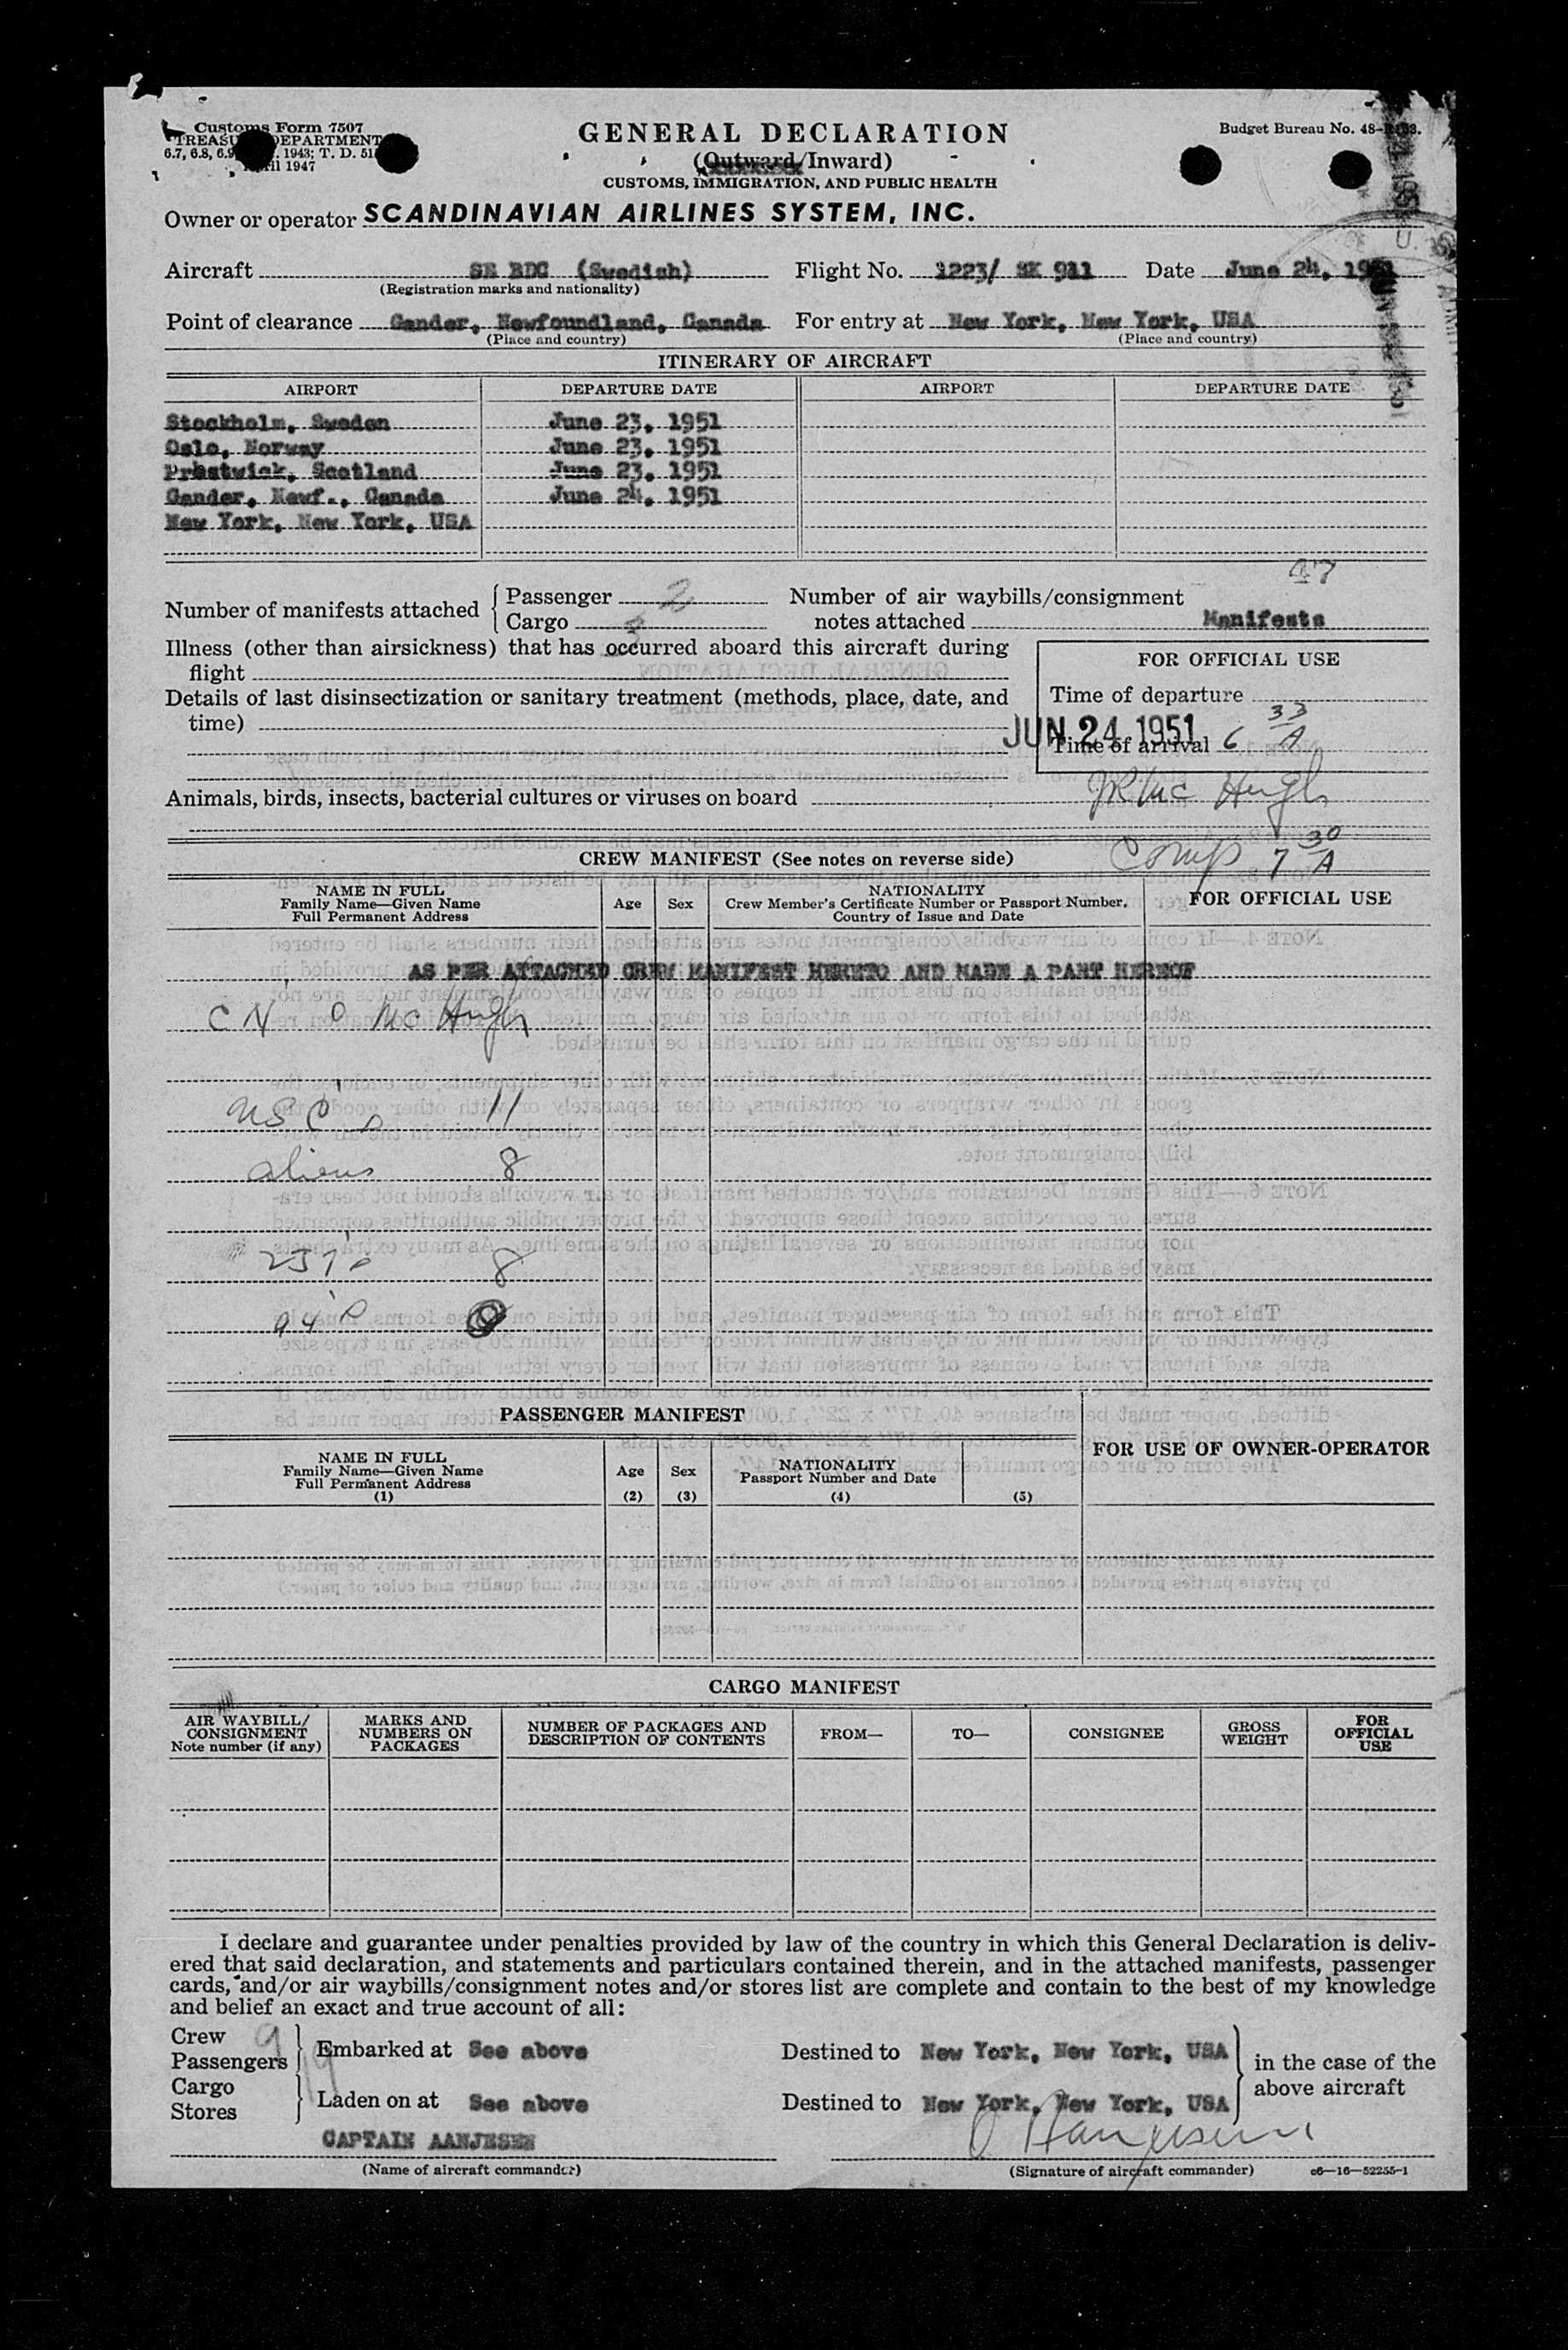 Customs Form 7507
TREASURY DEPARTMENT
6.7, 6.8, 6.9, 1943; T. D. 51
April 1947
GENERAL DECLARATION
(Outward/Inward)
CUSTOMS, IMMIGRATION, AND PUBLIC HEALTH
Budget Bureau No. 48-
Owner or operator SCANDINAVIAN AIRLINES SYSTEM, INC.
Aircraft SE BDC (Swedish) Flight No. 1223/ SK 911 Date June 24, 1951
(Registration marks and nationality)
Point of clearance Gander, Newfoundland, Canada For entry at New York, New York, USA
(Place and country) (Place and country)
ITINERARY OF AIRCRAFT
AIRPORT DEPARTURE DATE AIRPORT DEPARTURE DATE
Stockholm, Sweden June 23, 1951
Oslo, Norway June 23, 1951
Prestwick, Scotland June 23, 1951
Gander, Newf., Canada June 24, 1951
New York, New York, USA
Number of manifests attached Passenger 2 Number of air waybills/consignment
Cargo notes attached Manifests
Illness (other than airsickness) that has occurred aboard this aircraft during
flight
FOR OFFICIAL USE
Details of last disinsectization or sanitary treatment (methods, place, date, and
time)
Time of departure
JUN 24 1951
Time of arrival 6 33 A
Animals, birds, insects, bacterial cultures or viruses on board
JR McHugh
Comp 7 30 A
CREW MANIFEST (See notes on reverse side)
NAME IN FULL
Family Name—Given Name
Full Permanent Address
Age Sex
NATIONALITY
Crew Member's Certificate Number or Passport Number,
Country of Issue and Date
FOR OFFICIAL USE
AS PER ATTACHED CREW MANIFEST HERETO AND MADE A PART HEREOF
McHugh
USC's 11
aliens 8
257's 8
PASSENGER MANIFEST
NAME IN FULL
Family Name—Given Name
Full Permanent Address
(1)
Age
(2)
Sex
(3)
NATIONALITY
Passport Number and Date
(4) (5)
FOR USE OF OWNER-OPERATOR
CARGO MANIFEST
AIR WAYBILL/
CONSIGNMENT
Note number (if any)
MARKS AND
NUMBERS ON
PACKAGES
NUMBER OF PACKAGES AND
DESCRIPTION OF CONTENTS
FROM—
TO—
CONSIGNEE
GROSS
WEIGHT
FOR
OFFICIAL
USE
I declare and guarantee under penalties provided by law of the country in which this General Declaration is deliv-
ered that said declaration, and statements and particulars contained therein, and in the attached manifests, passenger
cards, and/or air waybills/consignment notes and/or stores list are complete and contain to the best of my knowledge
and belief an exact and true account of all:
Crew 9
Passengers 19
Embarked at See above Destined to New York, New York, USA
Cargo
Stores
Laden on at See above Destined to New York, New York, USA
in the case of the
above aircraft
CAPTAIN AANJESEN
(Name of aircraft commander) (Signature of aircraft commander) c6—16—52255-1